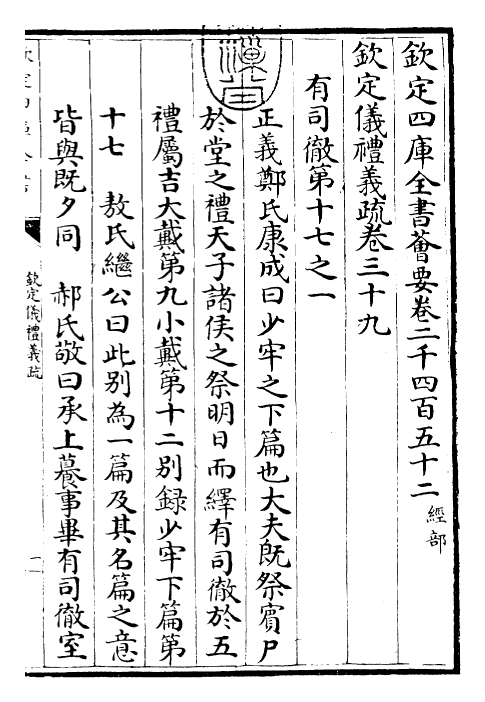 欽定四庫全書薈要卷二千四百五十二 經部
欽定儀禮義疏卷三十九
有司徹第十七之一
正義鄭氏康成曰少牢之下篇也大夫既祭賓尸
於堂之禮天子諸侯之祭明日而繹有司徹於五
禮屬吉大戴第九小戴第十二別録少牢下篇第
十七 敖氏繼公曰此別為一篇及其名篇之意
皆與既夕同 郝氏敬曰承上養事畢有司徹室
欽定儀禮義疏
一